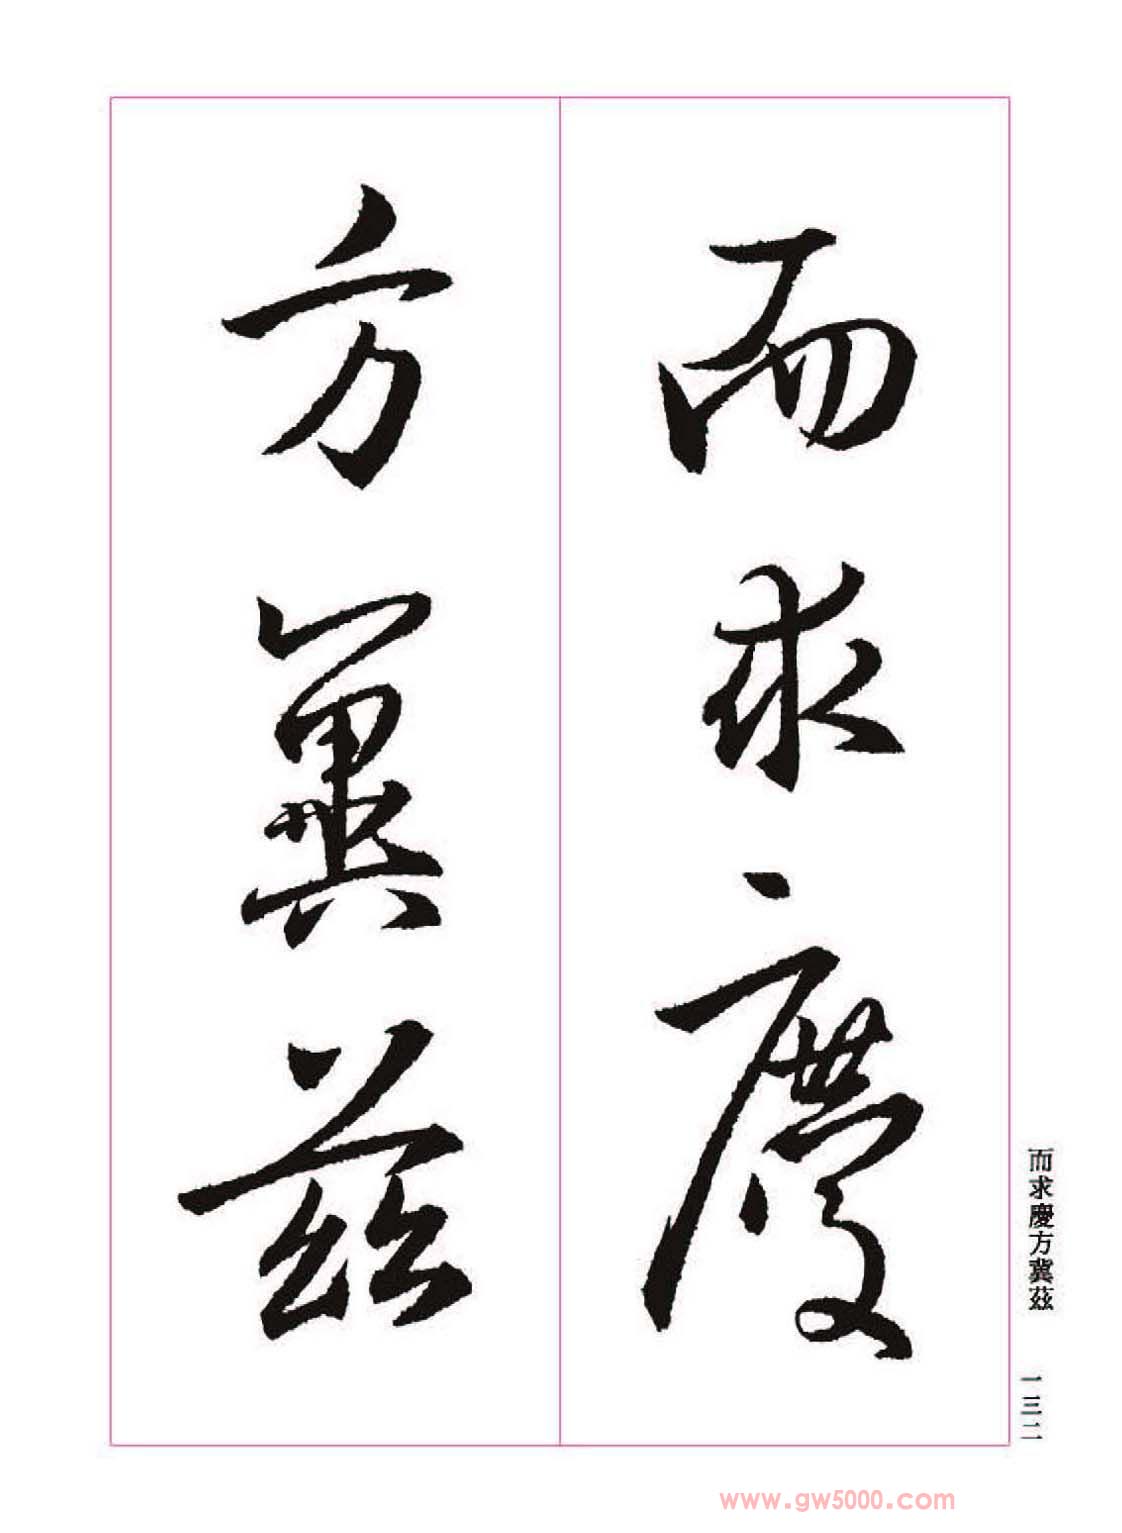 而求慶
方冀茲
而求慶方冀茲
一三二
www.gw5000.com